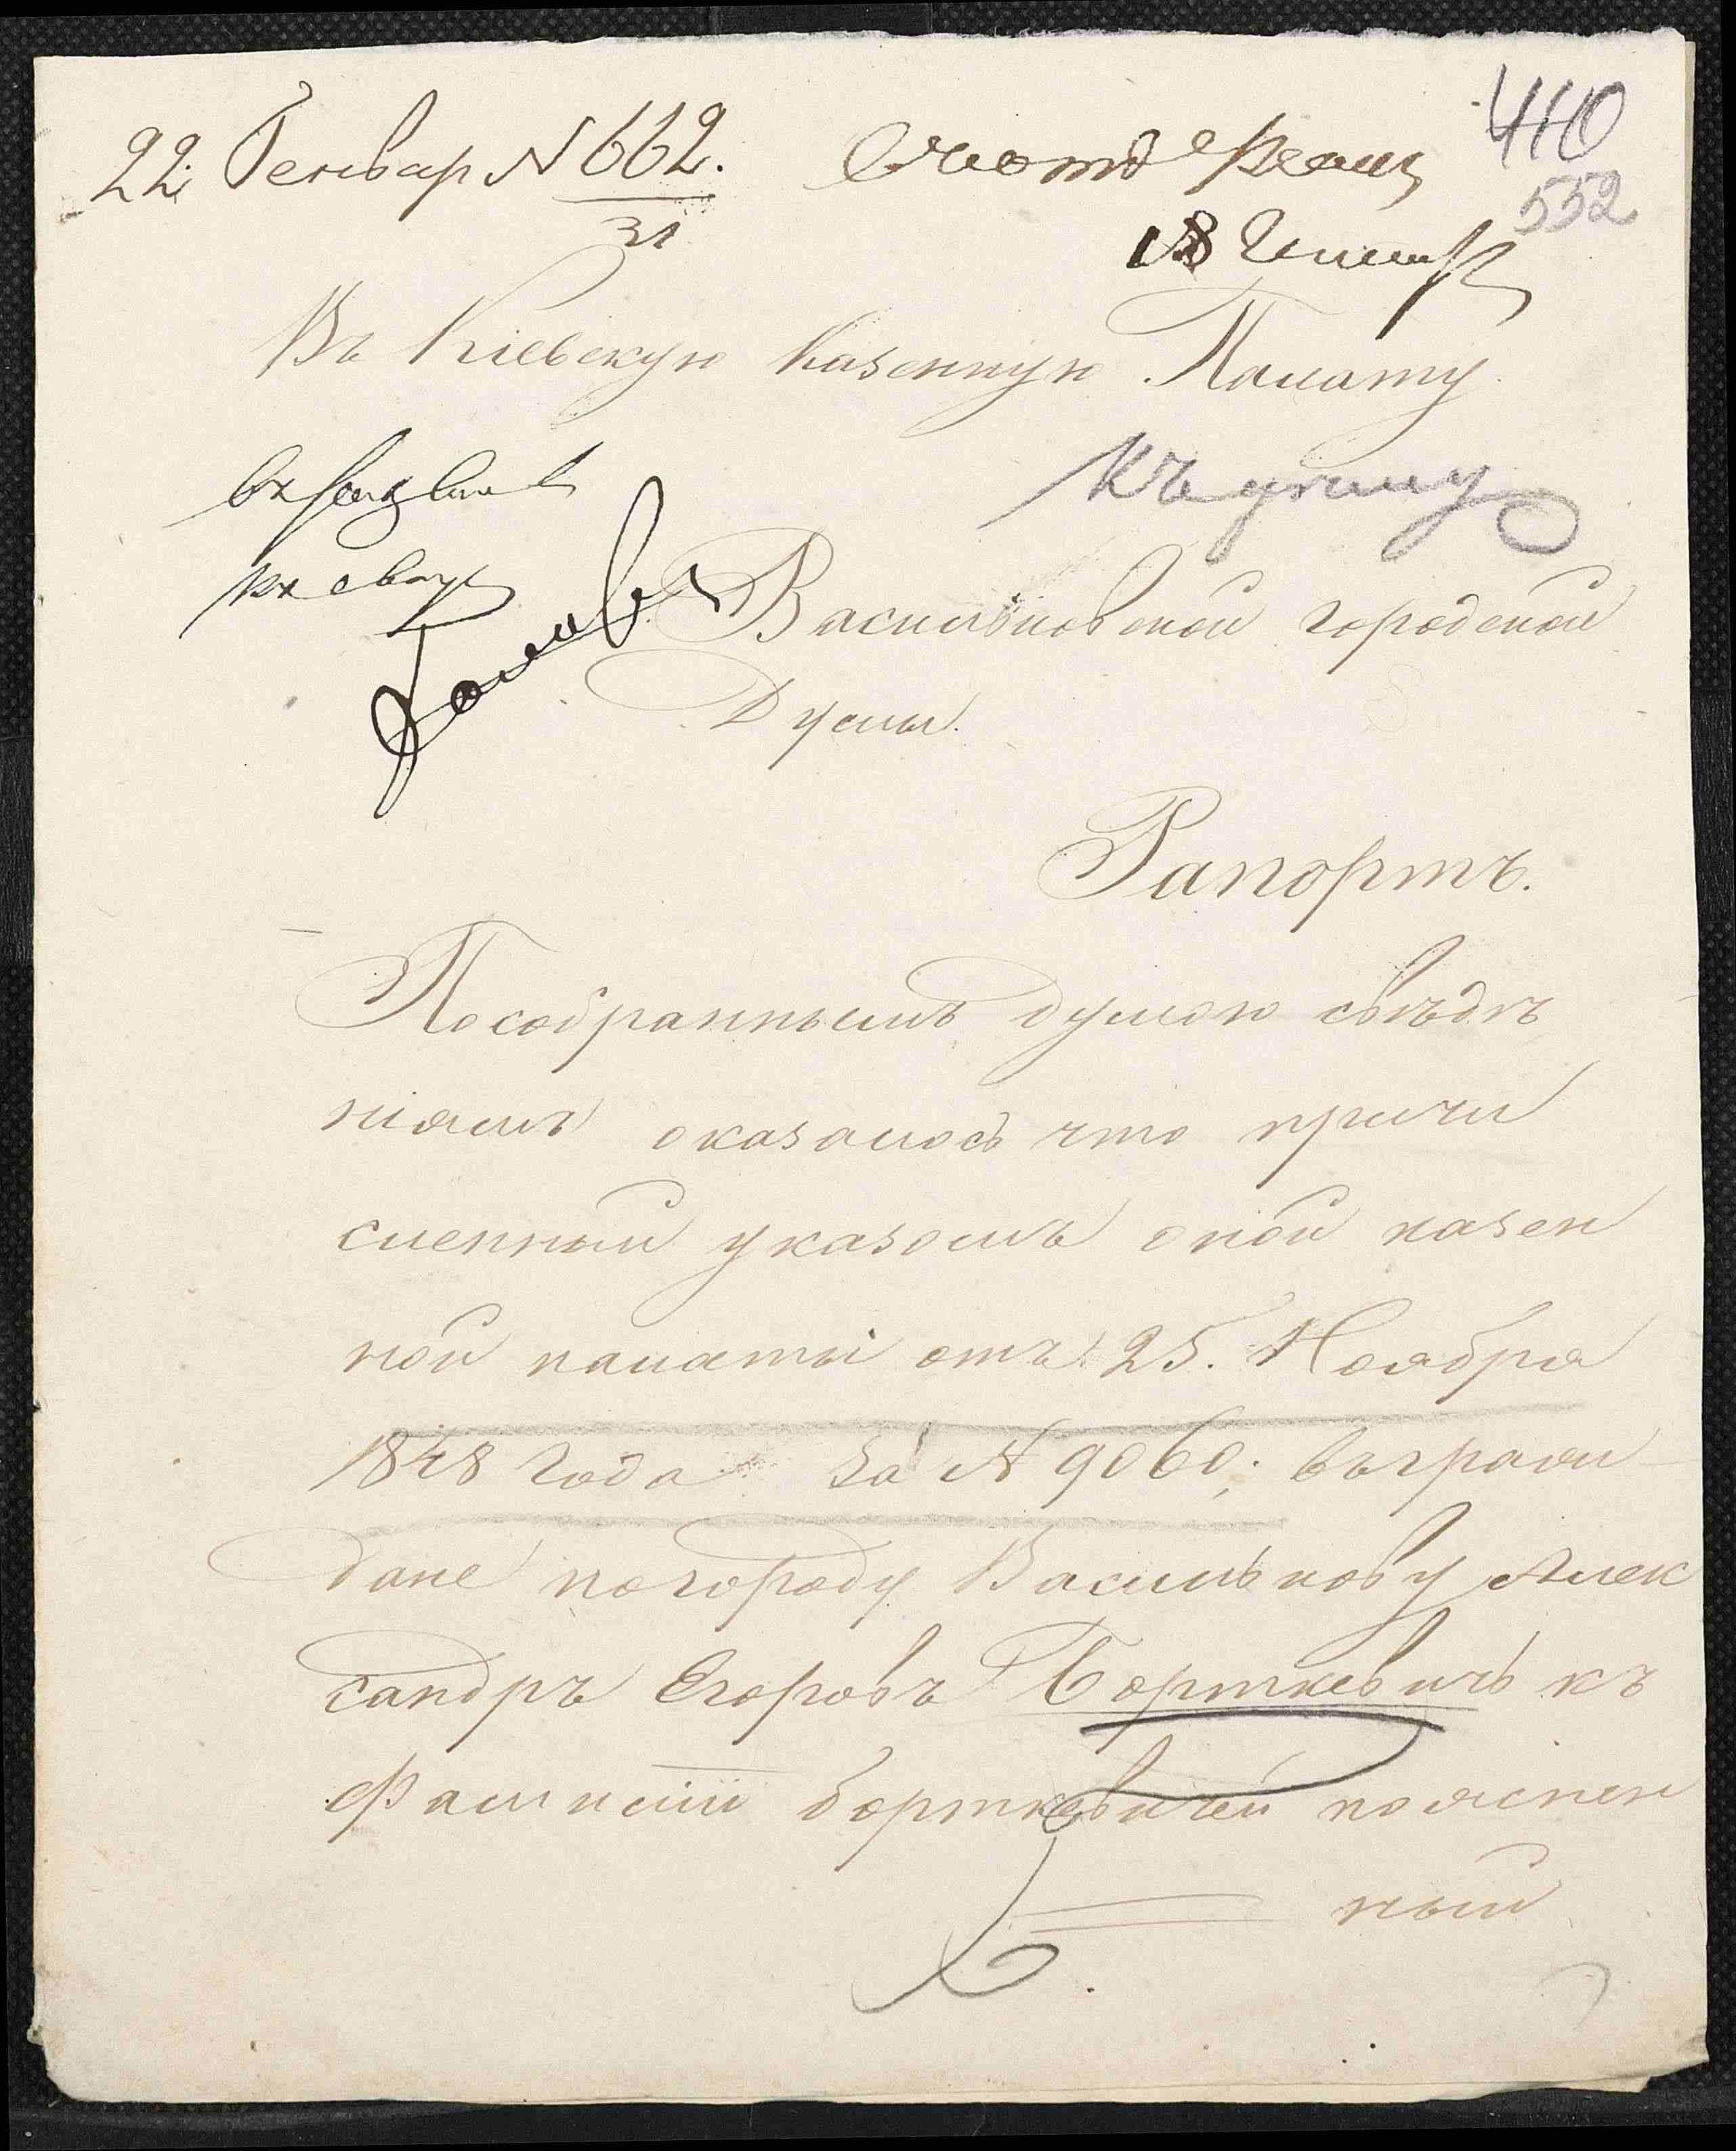 22 Генвар N 662.
31
410
552
Въ Кіевскую Казенную Палату
Васильковской городской
Думы.
Рапортъ.
По собраннымъ думою свѣдѣ
ніямъ оказалось что причи
сленный указомъ оной казен
ной палаты отъ 25. Ноября
1848 года за N 9060; въ граж
дане по городу Василькову Алек
сандръ Егоровъ Борткевичъ къ
фамиліи борткевичей пояснен
ный